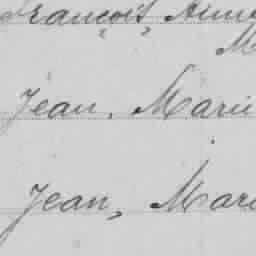 François, Aimé
M
Jean, Marie
Jean, Mari